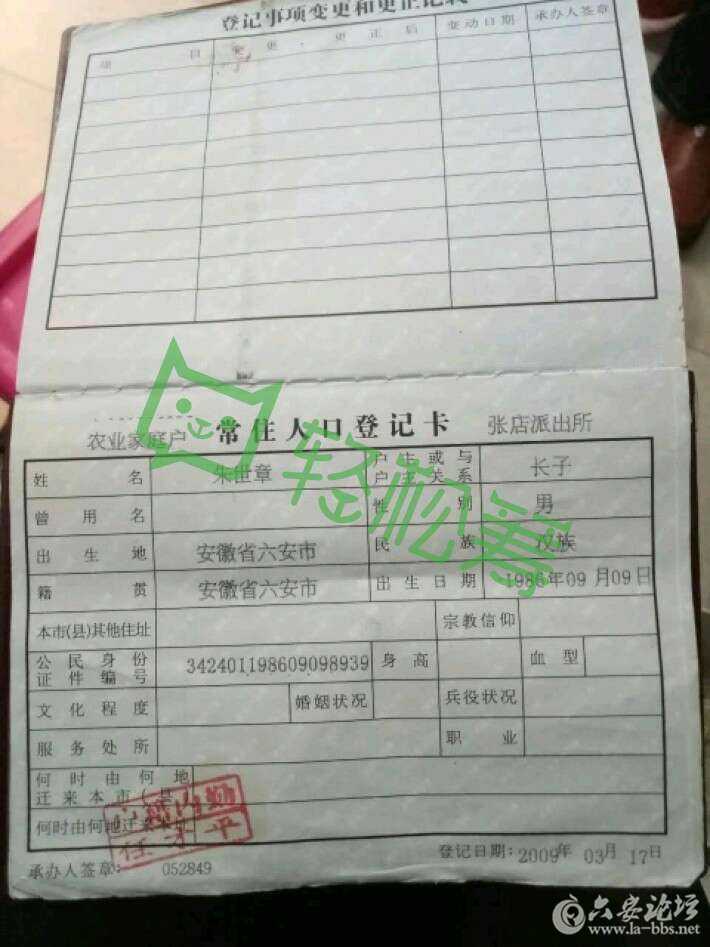 登记事项变更和更正记载
项 目 变更、更正后 变动日期 承办人签章
农业家庭户 常住人口登记卡 张店派出所
姓名 朱世章 户主或与户主关系 长子
曾用名 性别 男
出生地 安徽省六安市 民族 汉族
籍贯 安徽省六安市 出生日期 1986年09月09日
本市(县)其他住址 宗教信仰
公民身份证件编号 342401198609098939 身高 血型
文化程度 婚姻状况 兵役状况
服务处所 职业
何时由何地
迁来本市(县)
何时由何地迁来
承办人签章: 052849 登记日期:2009年03月17日
轻松筹
六安论坛
www.la-bbs.net